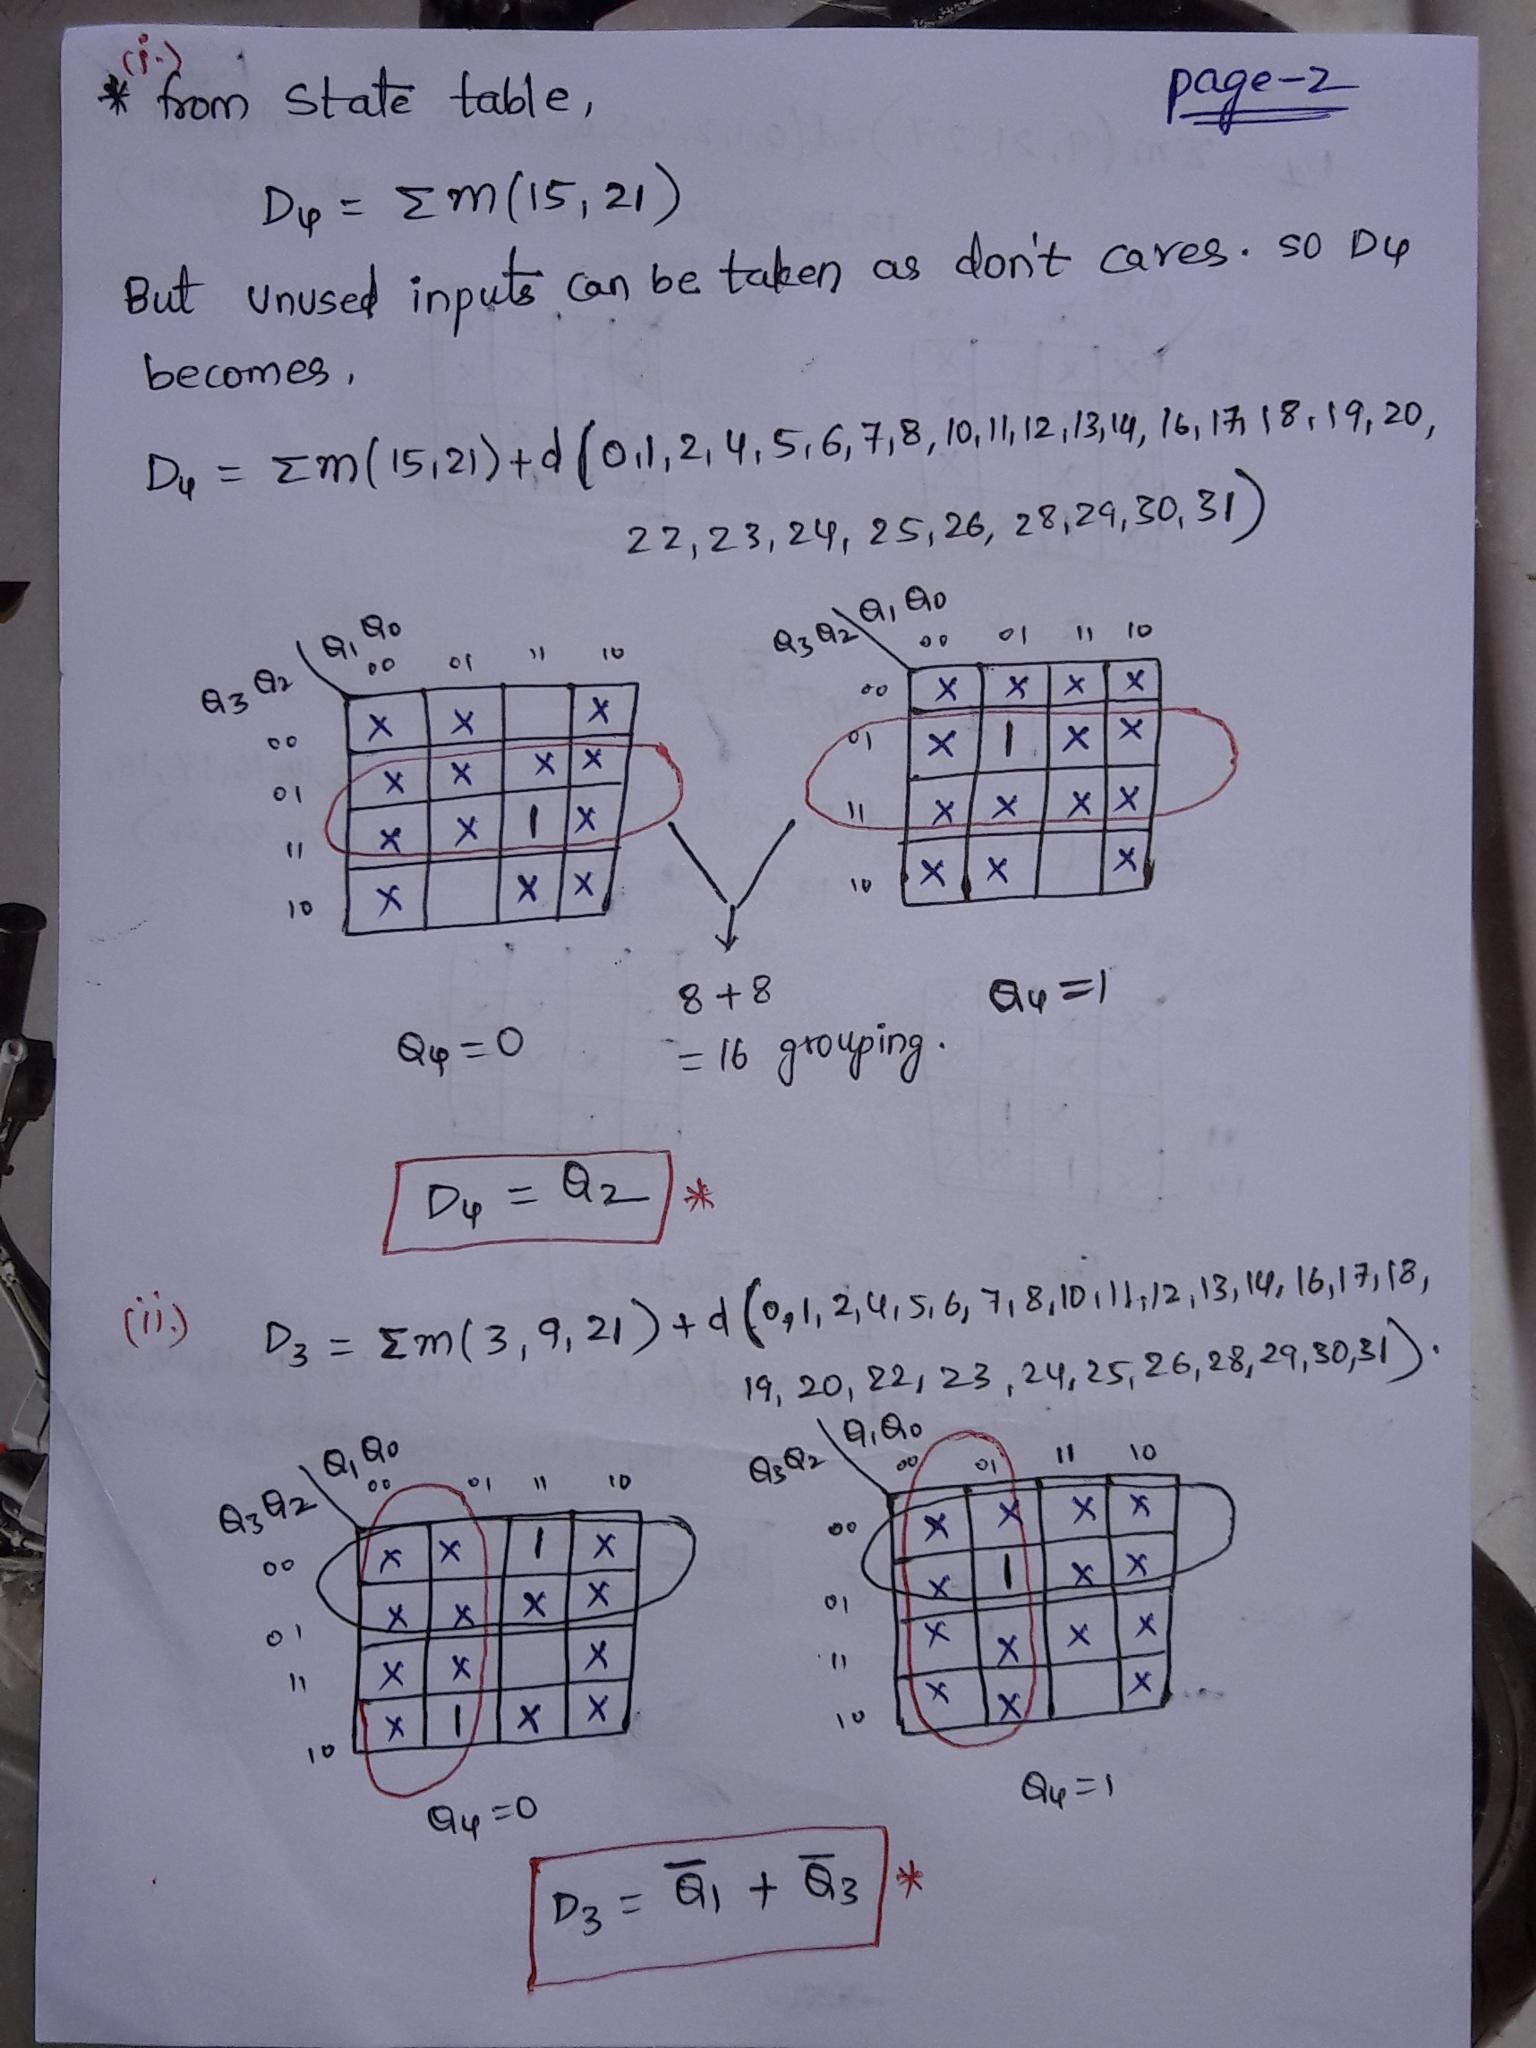 (i.)
* from state table,
page-2
D4 = Σm(15,21)
But unused inputs can be taken as don't cares. so D4
becomes,
D4 = Σm(15,21)+d(0,1,2,4,5,6,7,8,10,11,12,13,14,16,17,18,19,20,
22,23,24,25,26,28,29,30,31)
Q1 Q0
Q3 Q2
00 01 11 10
00 X X X
01 X X X X
11 X X 1 X
10 X X X
Q4=0
Q1 Q0
Q3 Q2
00 01 11 10
00 X X X X
01 X 1 X X
11 X X X X
10 X X X
Q4=1
8+8
=16 grouping.
D4 = Q2 *
(ii.) D3 = Σm(3,9,21)+d(0,1,2,4,5,6,7,8,10,11,12,13,14,16,17,18,
19,20,22,23,24,25,26,28,29,30,31).
Q1 Q0
Q3 Q2
00 01 11 10
00 X X 1 X
01 X X X X
11 X X X
10 X 1 X X
Q4=0
Q1 Q0
Q3 Q2
00 01 11 10
00 X X X X
01 X 1 X X
11 X X X X
10 X X X
Q4=1
D3 = Q̅1 + Q̅3 *